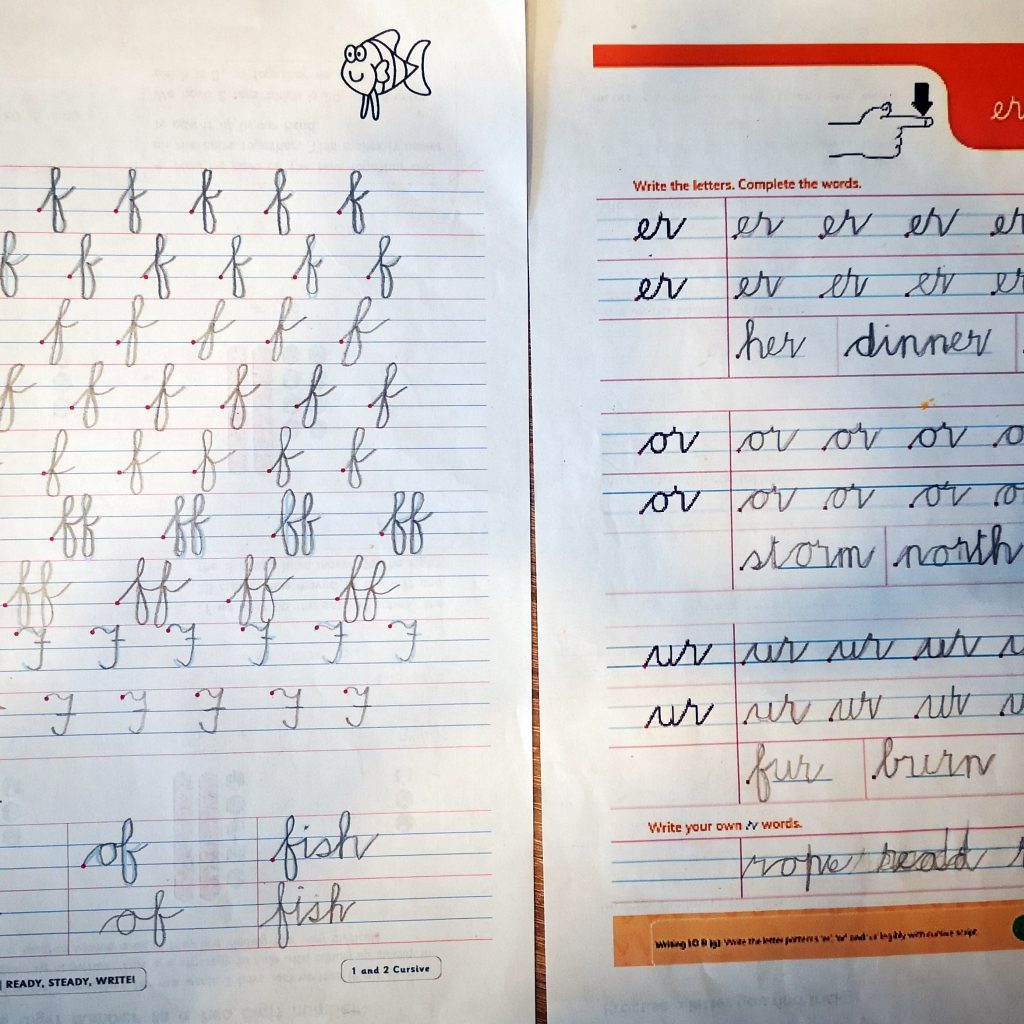 f f f f f
f f f f f f
f f f f f
f f f f f f
f f f f f
ff ff ff ff
ff ff ff ff
F F F F F F
F F F F F
of fish
of fish
READY, STEADY, WRITE!
1 and 2 Cursive
er
Write the letters. Complete the words.
er er er er er
er er er er er
her dinner
or or or or o
or or or or o
storm north
ur ur ur ur
ur ur ur ur
fur burn
Write your own r words.
rope
Write the letter patterns 'er', 'or' and 'ur' legibly with cursive script.